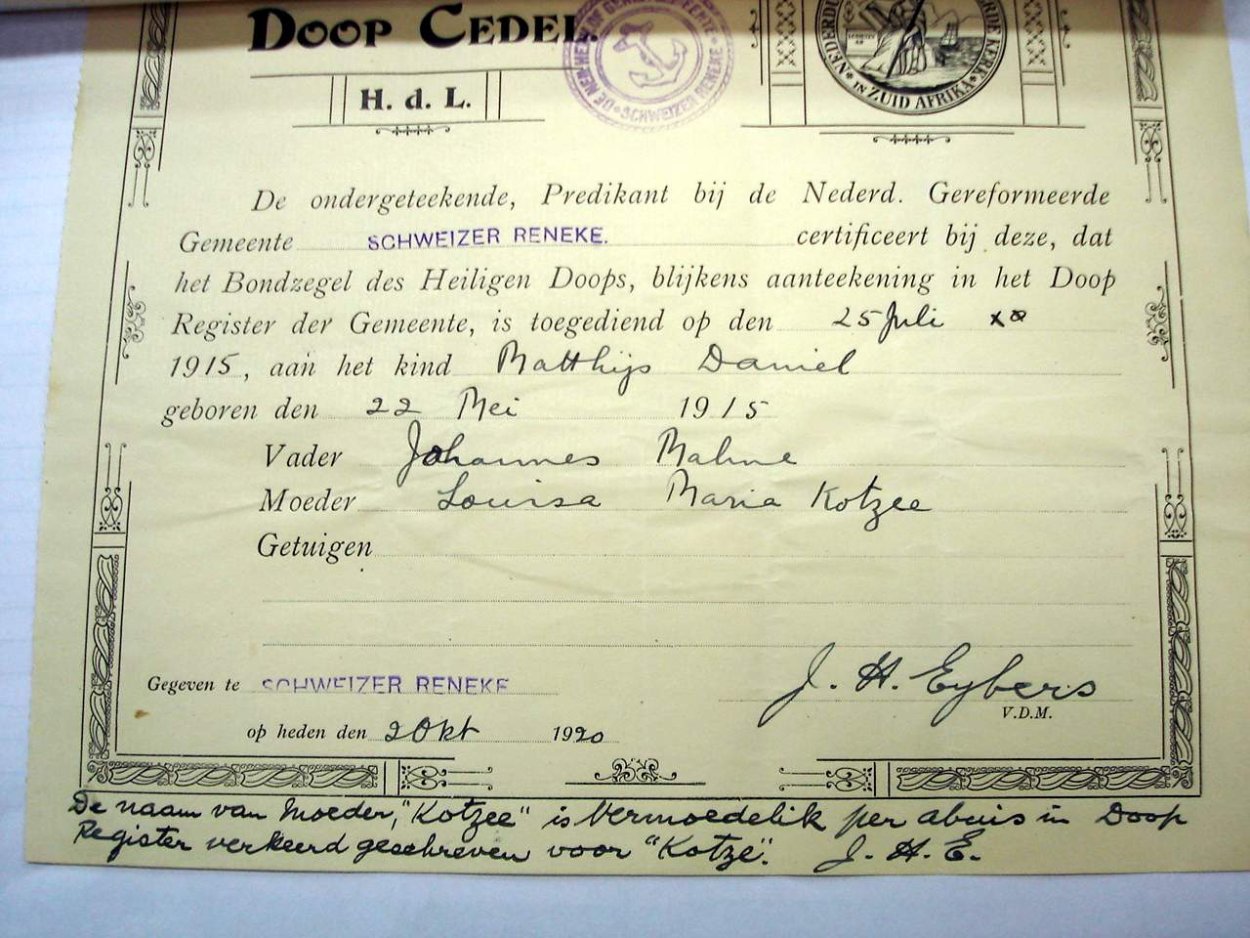 DOOP CEDEL.
H. d. L.
SCHWEIZER RENEKE
IN ZUID AFRIKA
De ondergeteekende, Predikant bij de Nederd. Gereformeerde
Gemeente SCHWEIZER RENEKE. certificeert bij deze, dat
het Bondzegel des Heiligen Doops, blijkens aanteekening in het Doop
Register der Gemeente, is toegediend op den 25 Juli
1915, aan het kind Matthijs Daniel
geboren den 22 Mei 1915
Vader Johannes
Moeder Louisa Maria Kotzee
Getuigen
Gegeven te SCHWEIZER RENEKE
J. H. Eybers
V.D.M.
op heden den 2 Okt 1920
De naam van Moeder, "Kotzee" is Vermoedelik per abuis in Doop
Register verkeerd geschreven voor "Kotze". J. H. E.